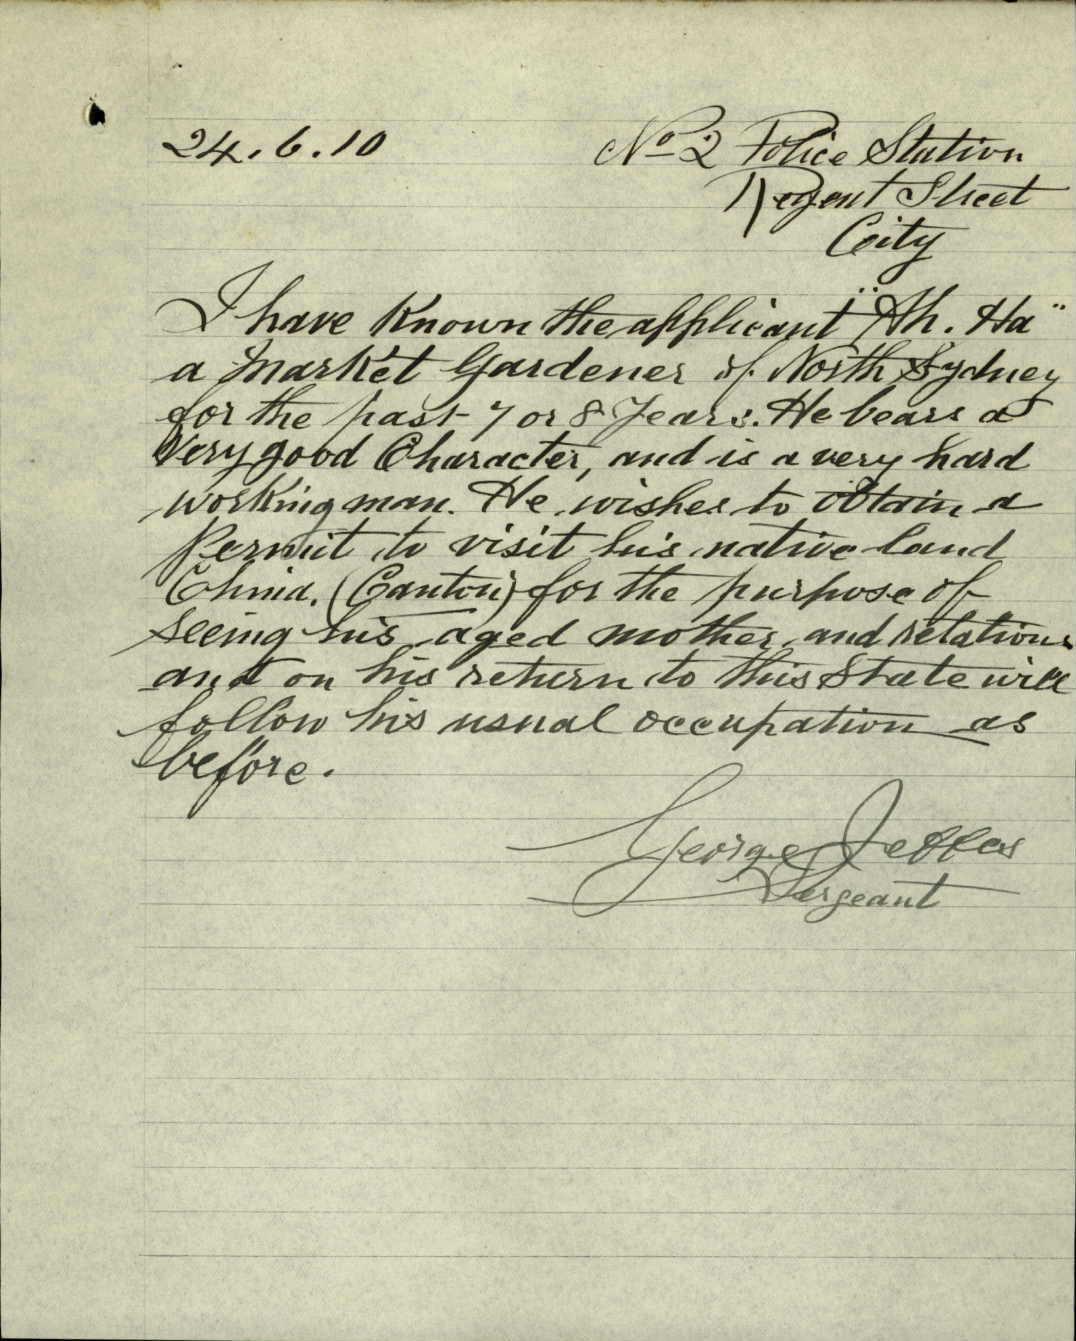 24.6.10
No 2 Police Station
Regent Street
City
I have Known the applicant "Ah. Ha"
a Market Gardener of North Sydney
for the past 7 or 8 Years. He bears a
Very good Character, and is a very hard
working man. He wishes to obtain a
Permit to visit his native land
China. (Canton) for the purpose of
seeing his aged mother, and relations
and on his return to this State will
follow his usual occupation as
before.
George
Sergeant